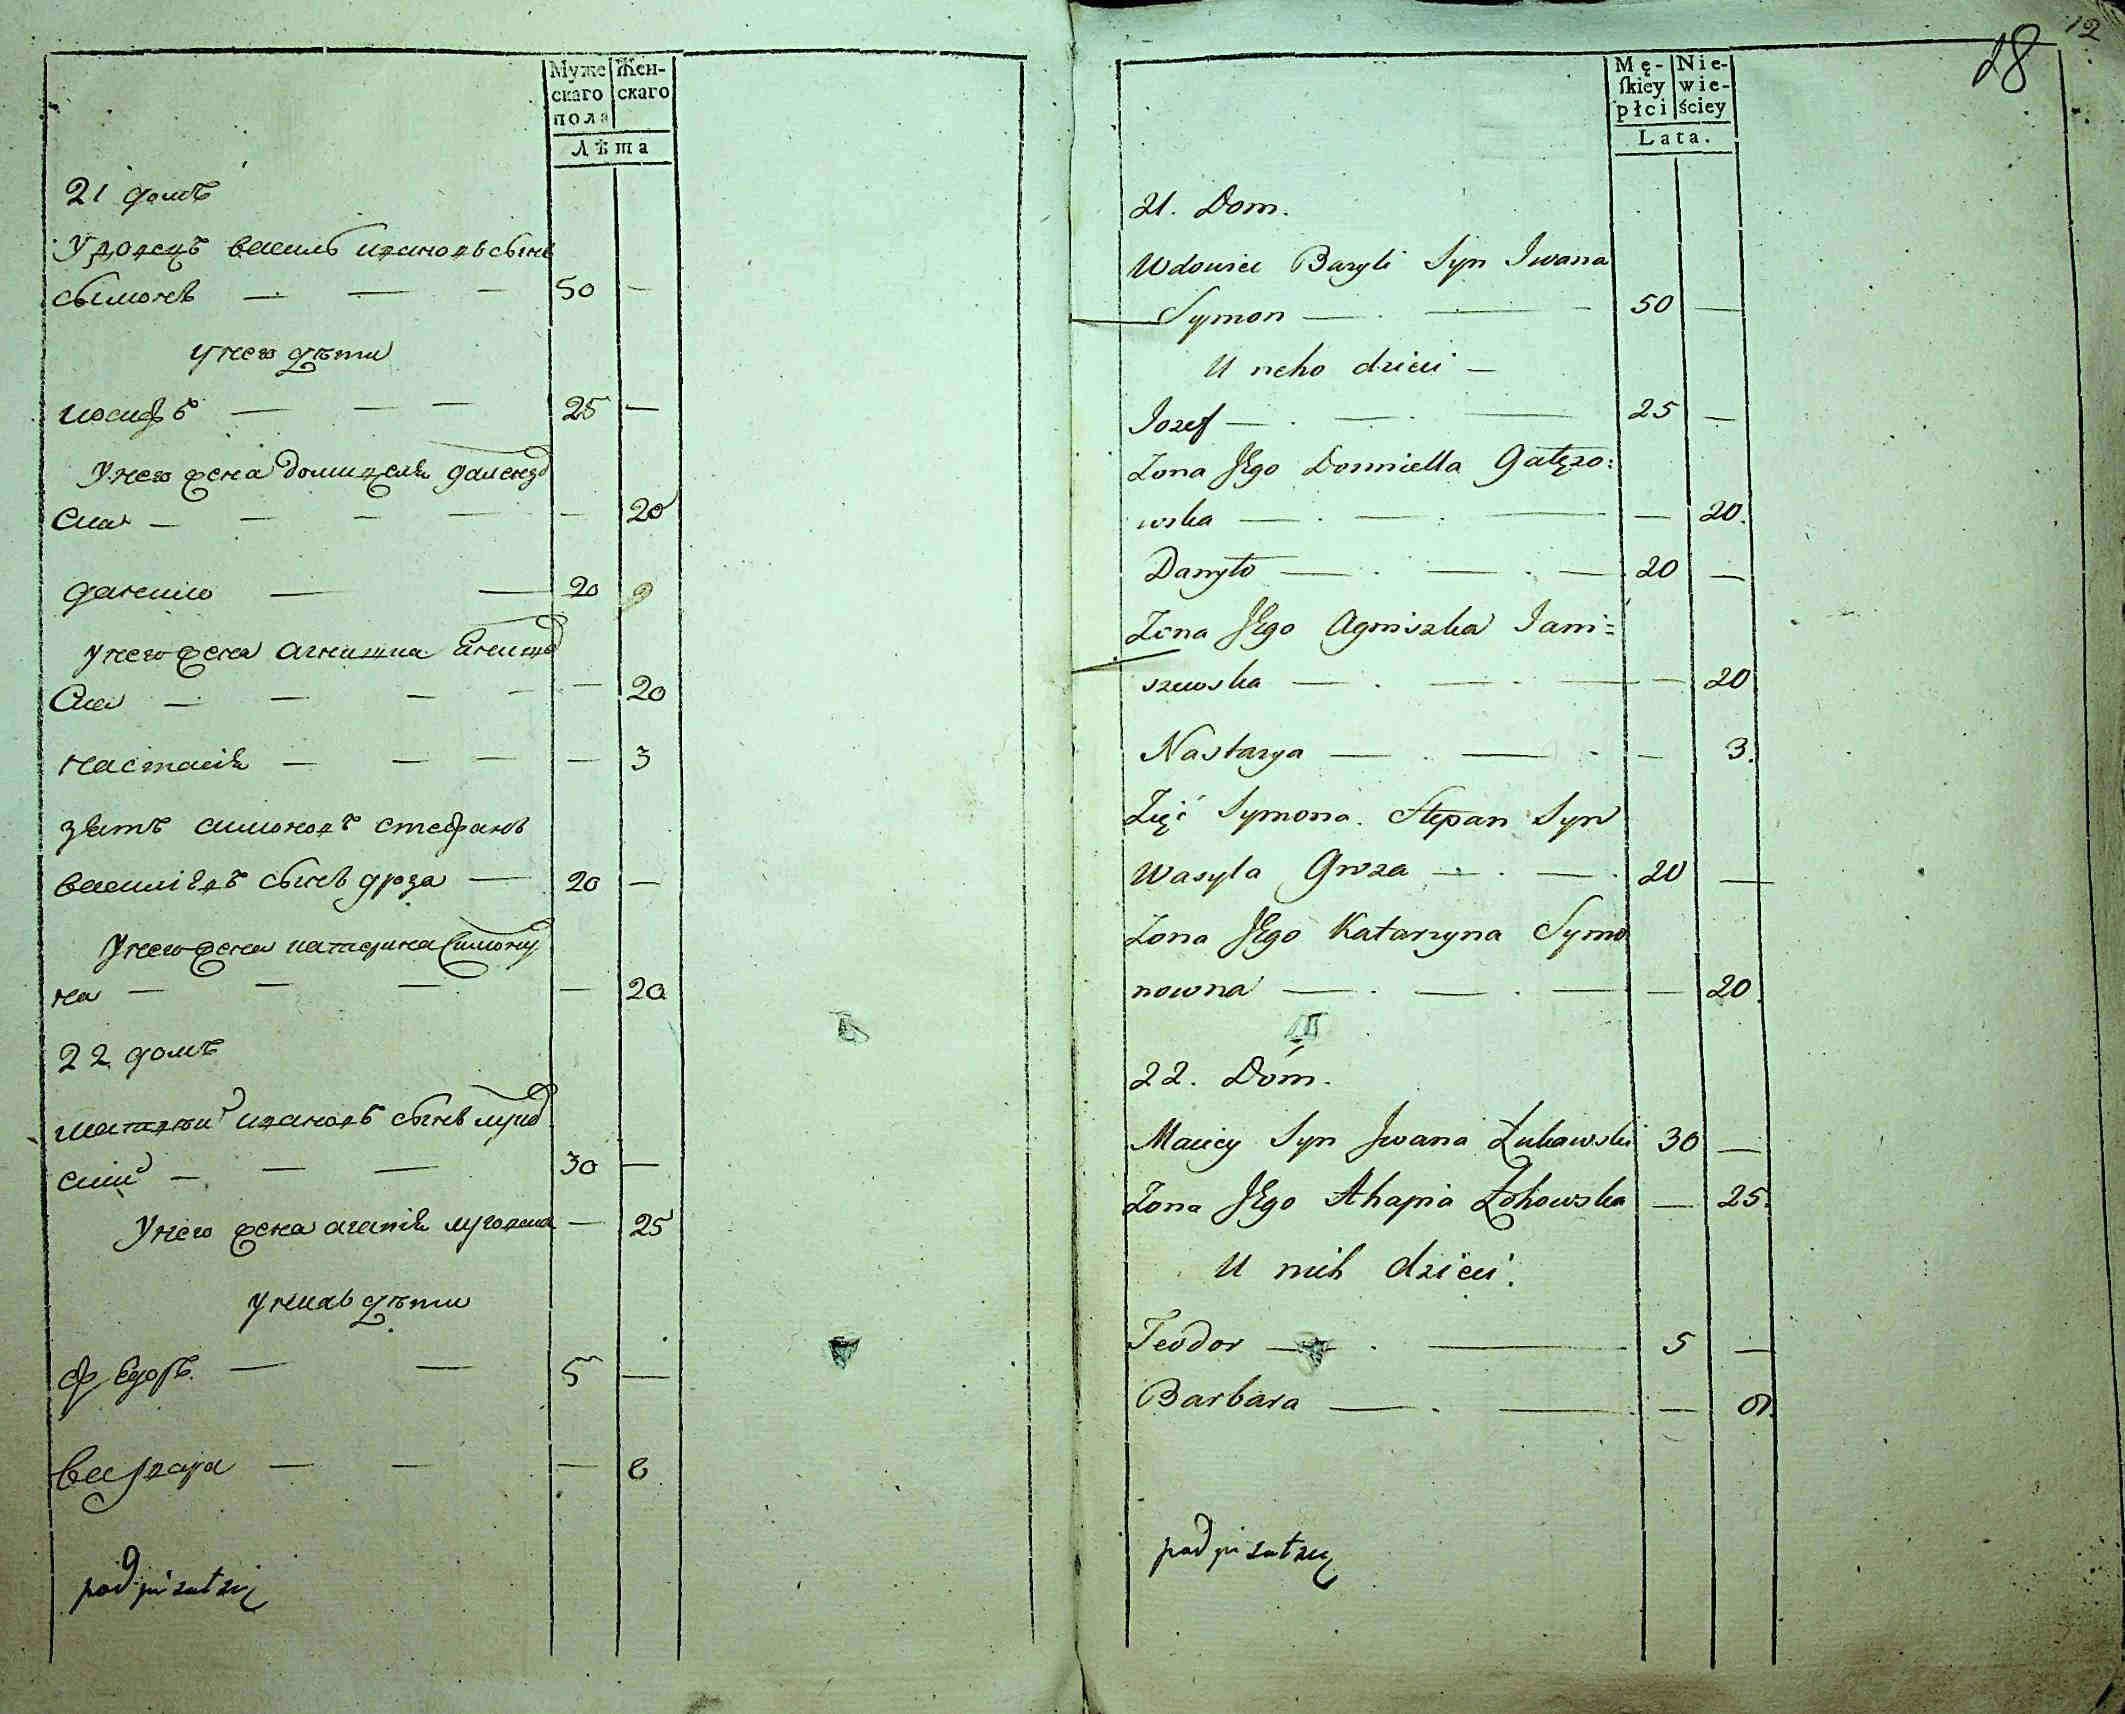 Муже
скаго
пола
Жен-
скаго
Лѣта
21 домъ
Удовецъ василь ивановъ сынъ
сымонъ — — — 50 —
у него дѣти
иосифъ — — — 25 —
У него жена домицеля галензов
ска — — — — — 20
данило — — 20
у него жена агнишка
ска — — — — — 20
настасія — — — — 3
зять симоновъ стефанъ
василіевъ сынъ дроза — 20 —
У него жена катерина симону
на — — — — 20
22 домъ
матвѣй ивановъ сынъ луков
скій — — — 30 —
У него жена агапія луговска — 25
у нихъ дѣти
фѣдоръ — — 5 —
варвара — — — 6
podpisałzię
28
12
Mę-
ſkiey
płci
Nie-
wie-
ściey
Lata.
21. Dom.
Wdowiec Bazyli Syn Iwana
Symon — . — - 50 —
U neho dzieci —
Iozef — . — . — 25 —
Zona JEgo Domniella Gałęzo:
wska — . — . — — 20.
Danyło — . — . — 20 —
Zona JEgo Agniszka Iani=
szewska — . — . — — 20
Nastazya — . — - — 3.
Zięć Symona. Stepan Syn
Wasyla Groza — . — . 20 —
Zona JEgo Katarzyna Symo
nowna — . — . — — 20.
22. Dóm.
Maciey Syn Jwana Łukawski 30 —
Zona JEgo Ahapia Łohowska — 25.
U nich dzieci.
Teodor — . — 5 —
Barbara — . — — 6.
podpisałzię